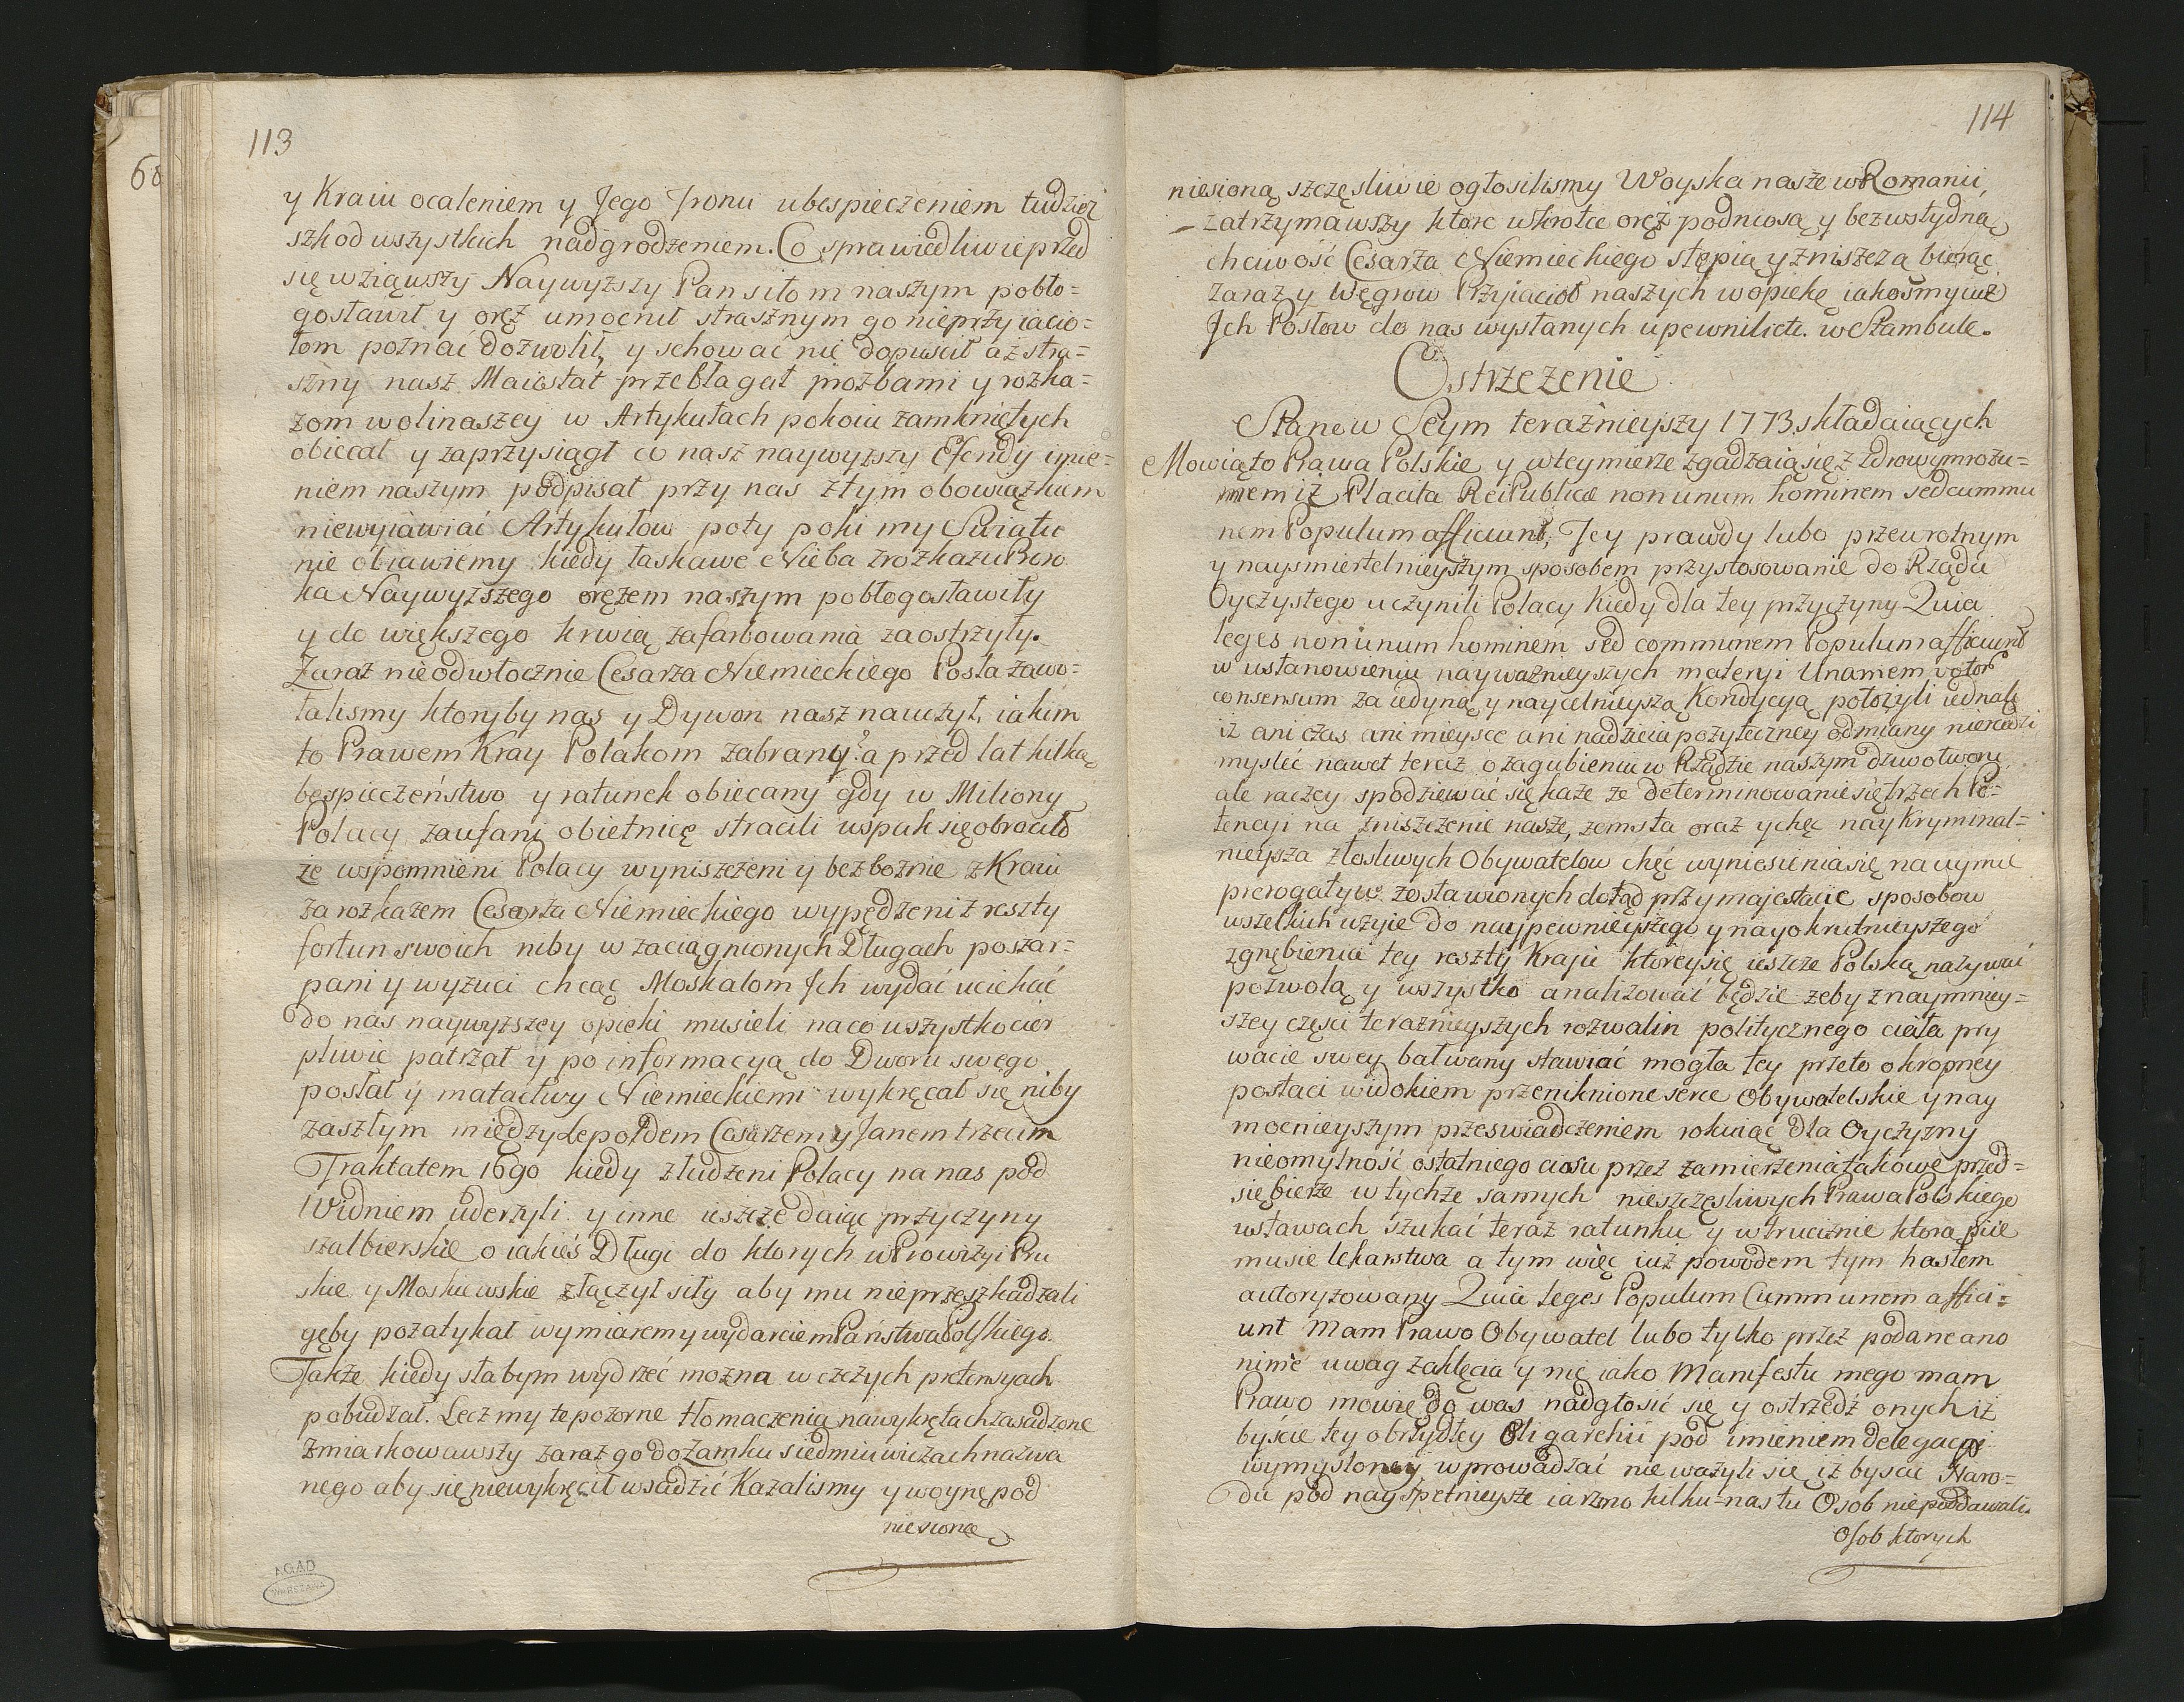 113
68
y Kraiu ocaleniem y Jego Tronu ubespieczeniem tudzież
szkod wszystkich nadgrodzeniem. Co sprawiedliwie przed
się wziąwszy Naywyższy Pan siłom naszym pobło=
gosławił y oręż umocnił strasznym go nieprzyiacio=
łom poznać dozwolił, y schować nie dopuścił aż stra=
szny nasz Maiestat przebłagał prozbami y rozka=
zom woli naszey w Artykułach pokoiu zamkniętych
obiecał y zaprzysiągł co nasz naywyższy Efendy imie=
niem naszym podpisał przy nas z tym obowiązkiem
niewyiawiać Artykułow poty poki my Światu
nie obiawiemy kiedy łaskawe Nieba z rozkazu Proro
ka Naywyższego orężem naszym pobłogosławiły
y do większego krwią zafarbowania zaostrzyły.
Zaraz nieodwłocznie Cesarza Niemieckiego Posła zawo=
łalismy ktoryby nas y Dywan nasz nauczył, iakim
to Prawem Kray Polakom zabrany? a przed lat kilką
bespieczeństwo y ratunek obiecany gdy w Miliony
Polacy zaufani obietnicę stracili wspak się obrociło
że wspomnieni Polacy wyniszczeni y bezbożnie z Kraiu
za rozkazem Cesarza Niemieckiego wypędzeni z reszty
fortun swoich niby w zaciągnionych Długach poszar=
pani y wyzuci chcąc Moskalom Ich wydać uciekać
do nas naywyższey opieki musieli na co wszystko cier
pliwie patrzał y po informacyą do Dworu swego
posłał y matactwy Niemieckiemi wykręcał się niby
zaszłym między Lepoldem Cesarzem y Janem trzecim
Traktatem 16go kiedy złudzeni Polacy na nas pod
Widniem uderzyli y inne ieszcze daiąc przyczyny
szalbierskie o iakieś Długi do ktorych w Prowizyi Pru
skie y Moskiewskie złączył siły aby mu nie przeszkadzali
gęby pozatykał wymiarem y wydarciem Państwa Polskiego.
Także kiedy słabym wydrzeć można w czczych pretensyach
pobudzał. Lecz my te pozorne tłomaczenia na wykrętach zasadzone
zmiarkowawszy zaraz go do Zamku siedmiu wieżach nazwa
nego aby się niewykręcił wsadzić Kazalismy y woynę pod
niesioną
114
niesioną szczęsliwie ogłosilismy Woyska nasze w Romanii
zatrzymawszy ktore wkrotce oręż podniosą y bezwstydną
chciwość Cesarza Niemieckiego stępią y zniszczą biorąc
zaraz y Węgrow Przyiacioł naszych w opiekę iakosmy iuż
Ich Posłow do nas wysłanych upewnili etc. w Stambule.
Ostrzeżenie
Stanow Seym teraźnieyszy 1773 składaiących
Mowią to Prawa Polskie y w tey mierze zgadzaią się z zdrowym rozu=
mem iż Placita Rei Publicæ non unum hominem sed cummu
nem Populum afficiunt, Tey prawdy lubo przewrotnym
y naysmiertelnieyszym sposobem przystosowanie do Rządu
Oyczystego uczynili Polacy kiedy dla tey przyczyny Quia
leges non unum hominem sed communem Populum afficiunt
w ustanowieniu nayważnieyszych materyi Unamem votor
consensum za iedyną y naycelnieyszą Kondycyą położyli iednak
iż ani czas ani mieysce ani nadzieia pożyteczney odmiany nieradzi
mysleć nawet teraz o zagubieniu w Rządzie naszym dziwotworu
ale raczey spodziewać się każe że determinowanie się trzech Po=
tencyi na zniszczenie nasze, zemsta oraz y chęc naykryminal=
nieysza złosliwych Obywatelow chęć wyniesienia się na uymie
prerogatyw zostawionych dotąd przy majestacie sposobow
wszelkich użyie do naypewnieyszego y nayokrutnieyszego
zgnębienia tey reszty Kraju ktorey się ieszcze Polską nazywać
pozwolą y wszystko analizować będzie zeby z naymniey=
szey części teraznieyszych rozwalin politycznego ciała pry
wacie swey bałwany stawiać mogła tey przeto okropney
postaci widokiem przeniknione serce Obywatelskie y nay
mocnieyszym przeswiadczeniem rokuiąc dla Oyczyzny
nieomylność ostatniego ciosu przez zamierzenia takowe przed=
siębierze w tychże samych nieszczęsliwych Prawa Polskiego
ustawach szukać teraz ratunku y w truciznie ktorą piie
musie lekarstwa a tym więc iuż powodem tym hasłem
autoryzowany Quia leges Populum Cummunem affici=
unt Mam Prawo Obywatel lubo tylko przez podane ano
nime uwag zaklęcia y nie iako Manifestu mego mam
Prawo mowię do was nadgłosić się y ostrzedź onych iż
byscie tey obrzydłey Oligarchii pod imieniem delegacyi
wymysloney wprowadzać nie ważyli się iż byscie Naro=
du pod nayszpetnieysze iarzmo kilku=nastu Osob niepoddawali.
Osob ktorych
AGAD
WARSZAWA